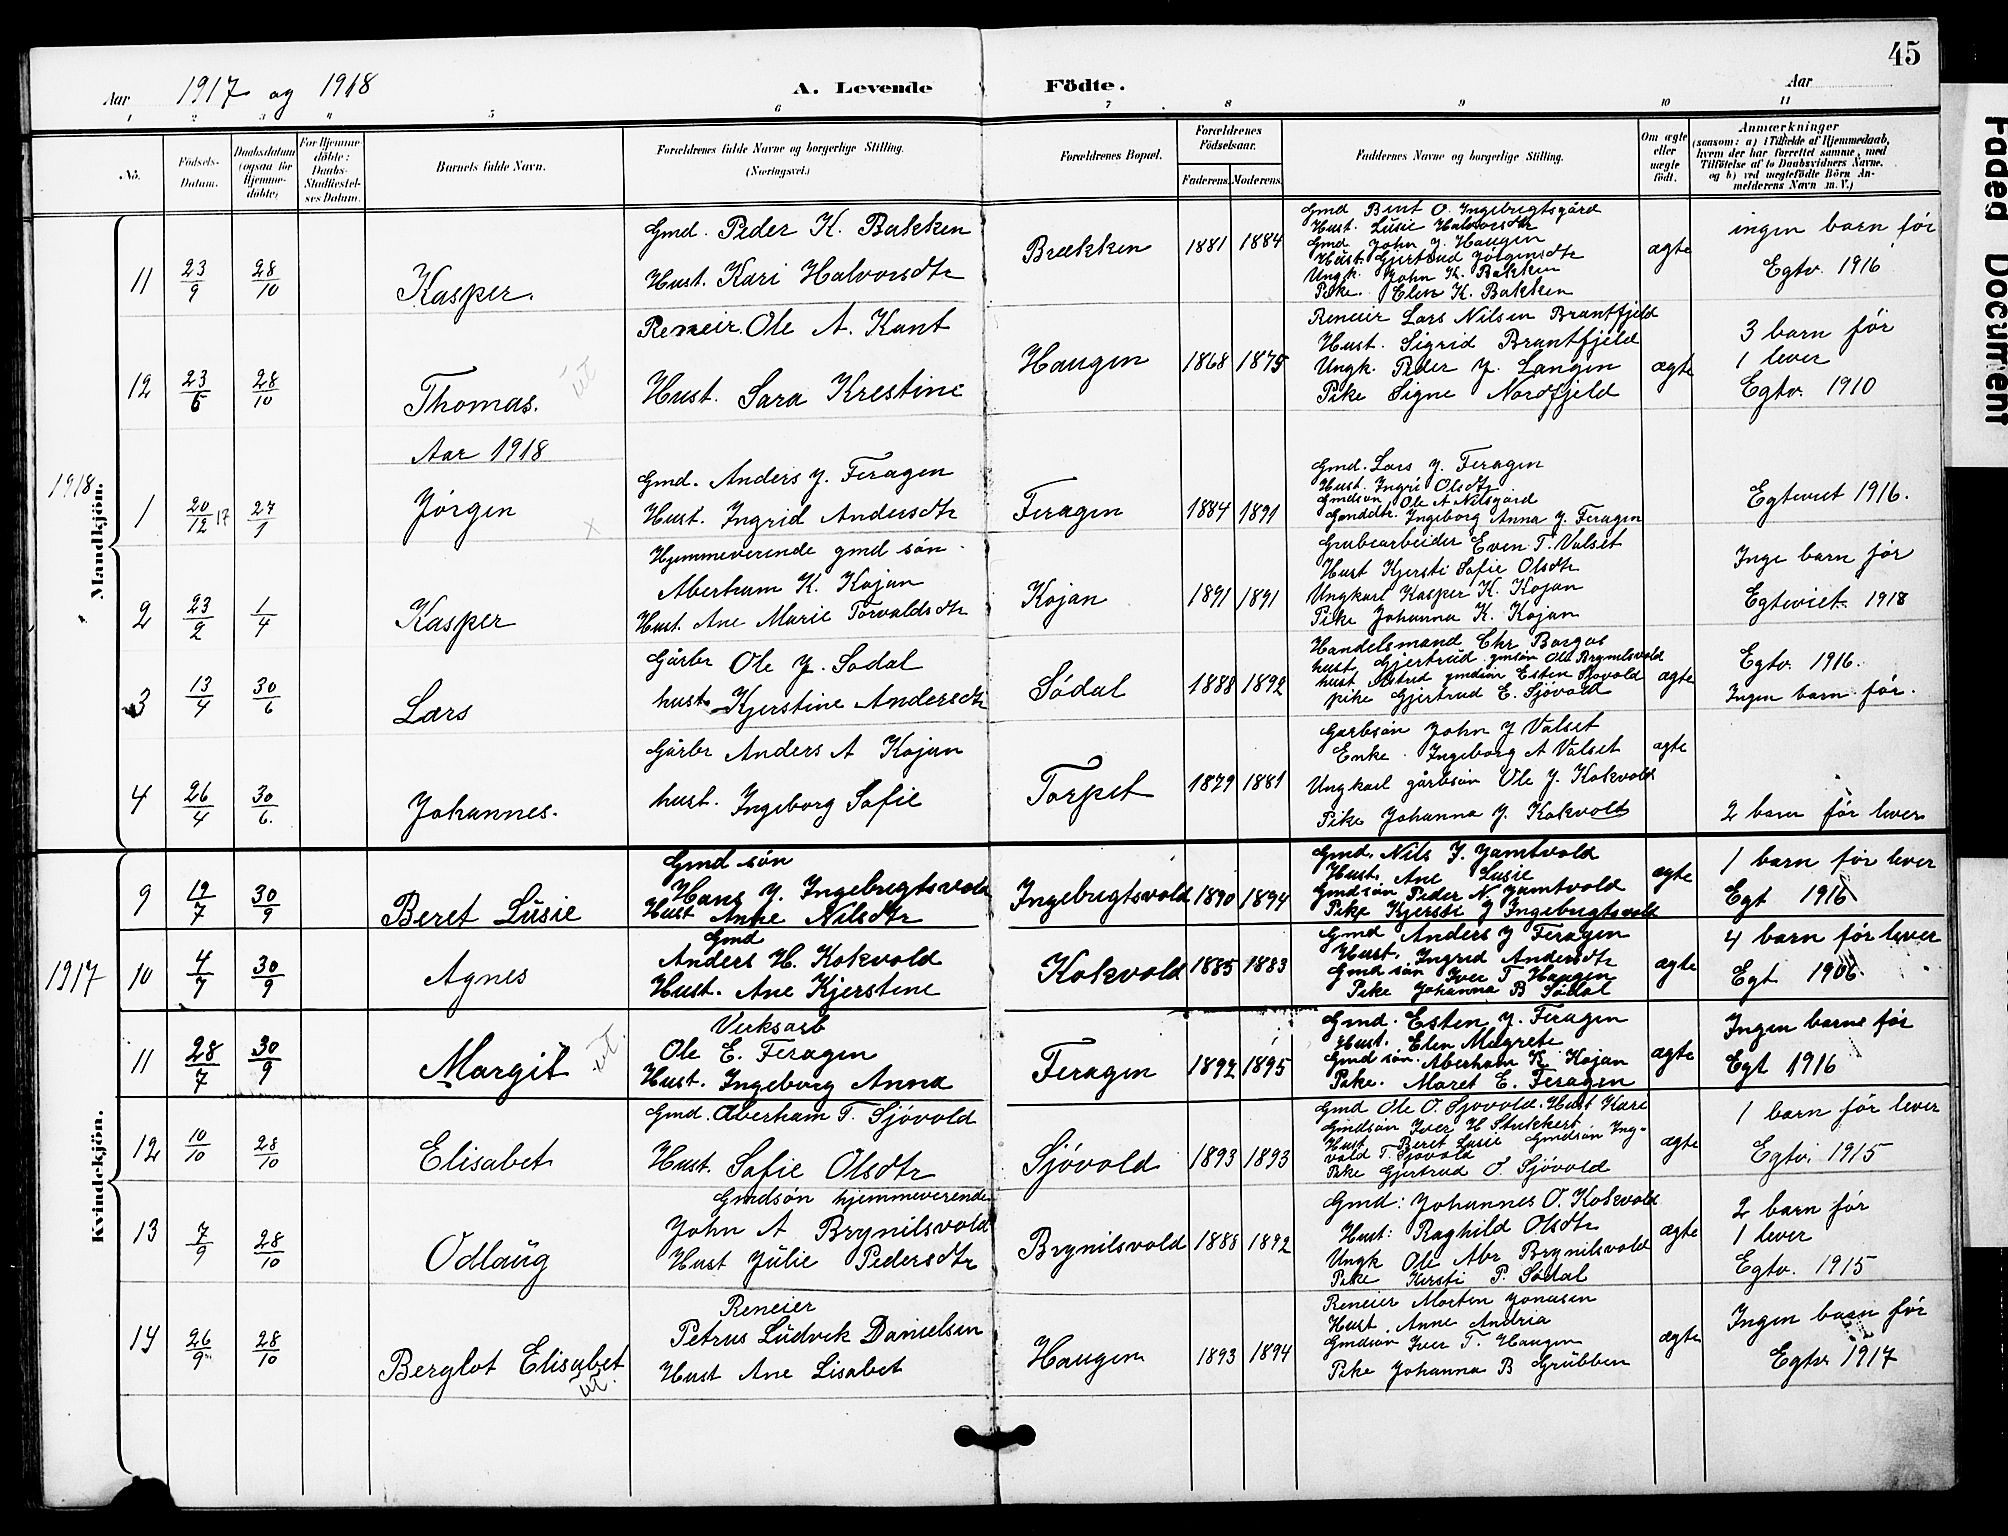 45
Aar 1917 og 1918
A. Levende Födte.
Aar
1 2 3 4 5 6 7 8 9 10 11
No.
Födsels-Datum.
Daabsdatum (ogsaa for Hjemme-döbte)
For Hjemme-döbte: Daabs-Stadfæstel-ses Datum.
Barnets fulde Navn.
Forældrenes fulde Navne og borgerlige Stilling. (Næringsvei.)
Forældrenes Bopæl.
Forældrenes Födselsaar.
Faderens. Moderens.
Faddernes Navne og borgerlige Stilling.
Om ægte eller uægte födt.
Anmærkninger
(saasom: a) i Tilfælde af Hjemmedaab, hvem der har forrettet samme, med Tilföielse af to Daabsvidners Navne. og b) ved uægtefödte Börn An-melderens Navn m. V.)
Mandkjön.
11 23/9 28/10 Kasper.
Gmd. Peder K. Bakken
Hust. Kari Halvorsdtr
Brækken 1881 1884
Gmd Bent O. Ingebrigtsgård
Hust. Lusie Halvorsdtr
Gmd John J. Haugen
Hust. Gjertrud Jörgensdtr
Ungk. John K. Bakken
Pike. Elen K. Bakken
ægte
ingen barn før
Egtv. 1916
12 23/5 28/10 Thomas. ut
Reneier Ole A. Kant
Hust. Sara Krestine
Haugen 1868 1875
Reneier Lars Nilsen Brantfjeld
Hust. Sigrid Brantfjeld
Ungk. Peder J. Langen
Pike Signe Nordfjeld
ægte
3 barn før
1 lever
Egtv. 1910
Aar 1918
1918
1 20/12 17 27/1 Jørgen x
Gmd. Anders J. Feragen
Hust. Ingrid Andersdtr
Feragen 1884 1891
Gmd. Lars J. Feragen
Hust. Ingri Olsdtr
Gmdsøn Ole A Nilsgård
Gmddtr. Ingeborg Anna J. Feragen
Egteviet 1916.
2 23/2 1/4 Kasper
Hjemmeverende gmd søn
Aberham K. Kojan
Hust. Ane Marie Torvaldsdtr
Kojan 1891 1891
Grubearbeider Even T. Valset
Hust Kjersti Sofie Olsdtr
Ungkarl Kasper K. Kojan
Pike Johanna K. Kojan
Inge barn før
Egteviet 1918
3 13/4 30/6 Lars
Gårbr Ole J. Sødal
hust. Kjerstine Andersdtr
Sødal 1888 1892
Handelsmand Chr Borgos
hust Gjertrud gmsøn Ole Brynilsvold
hust Astrid gmdsøn Esten Sjøvold
pike Gjertrud E. Sjövold
ægte
Egtv. 1916.
Ingen barn før.
4 26/4 30/6. Johannes.
Gårbr Anders A Kojan
hust. Ingeborg Sofie
Torpet 1879 1881
Garbsøn John J Valset
Enke. Ingeborg A Valset
Ungkarl gårbsøn Ole J. Kokvold
Pike Johanna J. Kokvold
ægte
2 barn før lever
Kvindekjön.
9 12/7 30/9 Beret Lusie
Gmd søn
Hans J. Ingebrigtsvold
Hust Anne Nilsdtr
Ingebrigtsvold 1890 1894
Gmd. Nils J. Jamtvold
Hust. Ane Lusie
Gmdsøn Peder N Jamtvold
Pike Kjersti J Ingebrigtsvold
ægte
1 barn før lever
Egt 1916
1917
10 4/7 30/9 Agnes
Gmd
Anders H. Kokvold
Hust. Ane Kjerstine
Kokvold 1885 1883
Gmd Anders J Feragen
Hust. Ingrid Andersdtr
Gmd søn Iver T Haugen
Pike Johanna B Sødal
ægte
4 barn før lever
Egt 1906
11 28/7 30/9 Margit ut
Verksarb
Ole E. Feragen
Hust. Ingeborg Anna
Feragen 1892 1895
Gmd. Esten J. Feragen
Hust. Elen Magrete
Gmd søn. Aberham K. Kojan
Pike. Maret E. Feragen
ægte
Ingen barne før
Egt 1916
12 10/10 28/10 Elisabet
Gmd. Aberham T. Sjövold
Hust. Sofie Olsdtr
Sjövold 1893 1893
Gmd Ole O. Sjovold. Hust Kare
Gmdsön Iver H Stukkert
Hust Beret Lusie Gmdsøn Ing-
vald T. Sjøvold
Pike Gjertrud O. Sjövold
ægte
1 barn før lever
Egtv. 1915
13 7/9 28/10 Odlaug
Gmdsøn hjemmeverende
John A Brynilsvold
Hust Julie Pedersdtr
Brynilsvold 1888 1892
Gmd: Johannes O. Kokvold
Hust: Raghild Olsdtr
Ungk Ole Abr Brynilsvold
Pike Kersti P. Sødal
ægte
2 barn før
1 lever
Egtv. 1915
14 26/9 28/10 Berglot Elisabet ut.
Reneier
Petrus Ludvik Danielsen
Hust Ane Lisabet
Haugen 1893 1894
Reneier Morten Jonasen
Hust. Anne Andria
Gmdsøn Iver T. Haugen
Pike Johanna B Grubben
ægte
Ingen barn før
Egtv 1917
Faded Document